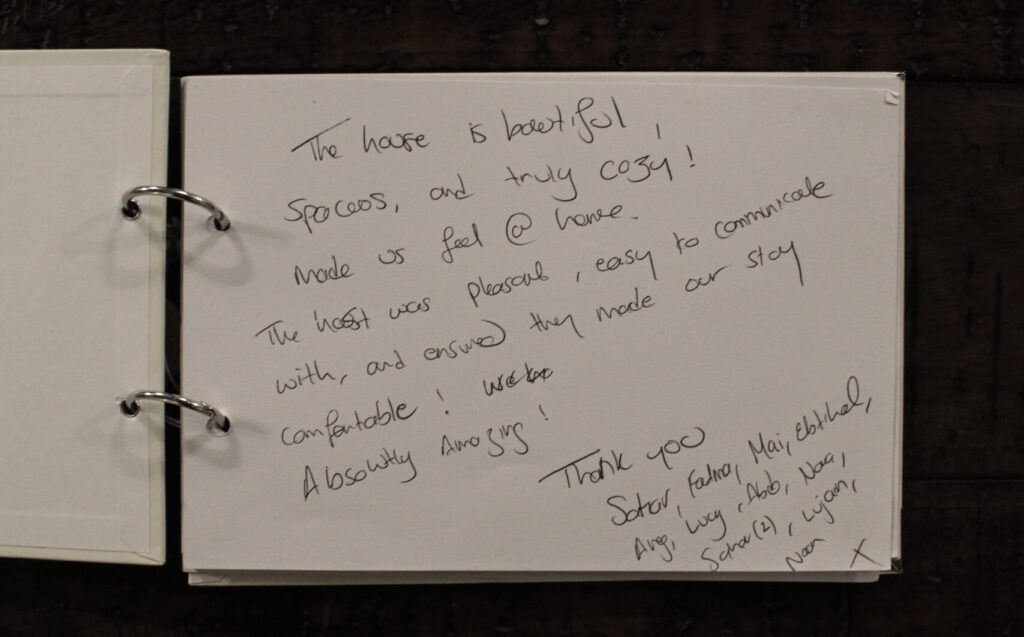 The house is beautiful,
Spaceos, and truly cozy!
Made us feel @ home.
The host was pleasant, easy to comminicate
with, and ensured they made our stay
comfortable!
Absoultly Amazing!
Thank you
Sahar, Fadma, Mai, Ebtihal,
Areg, Lucy, Abib, Naa,
Sahar(2), Lujain,
Noon X